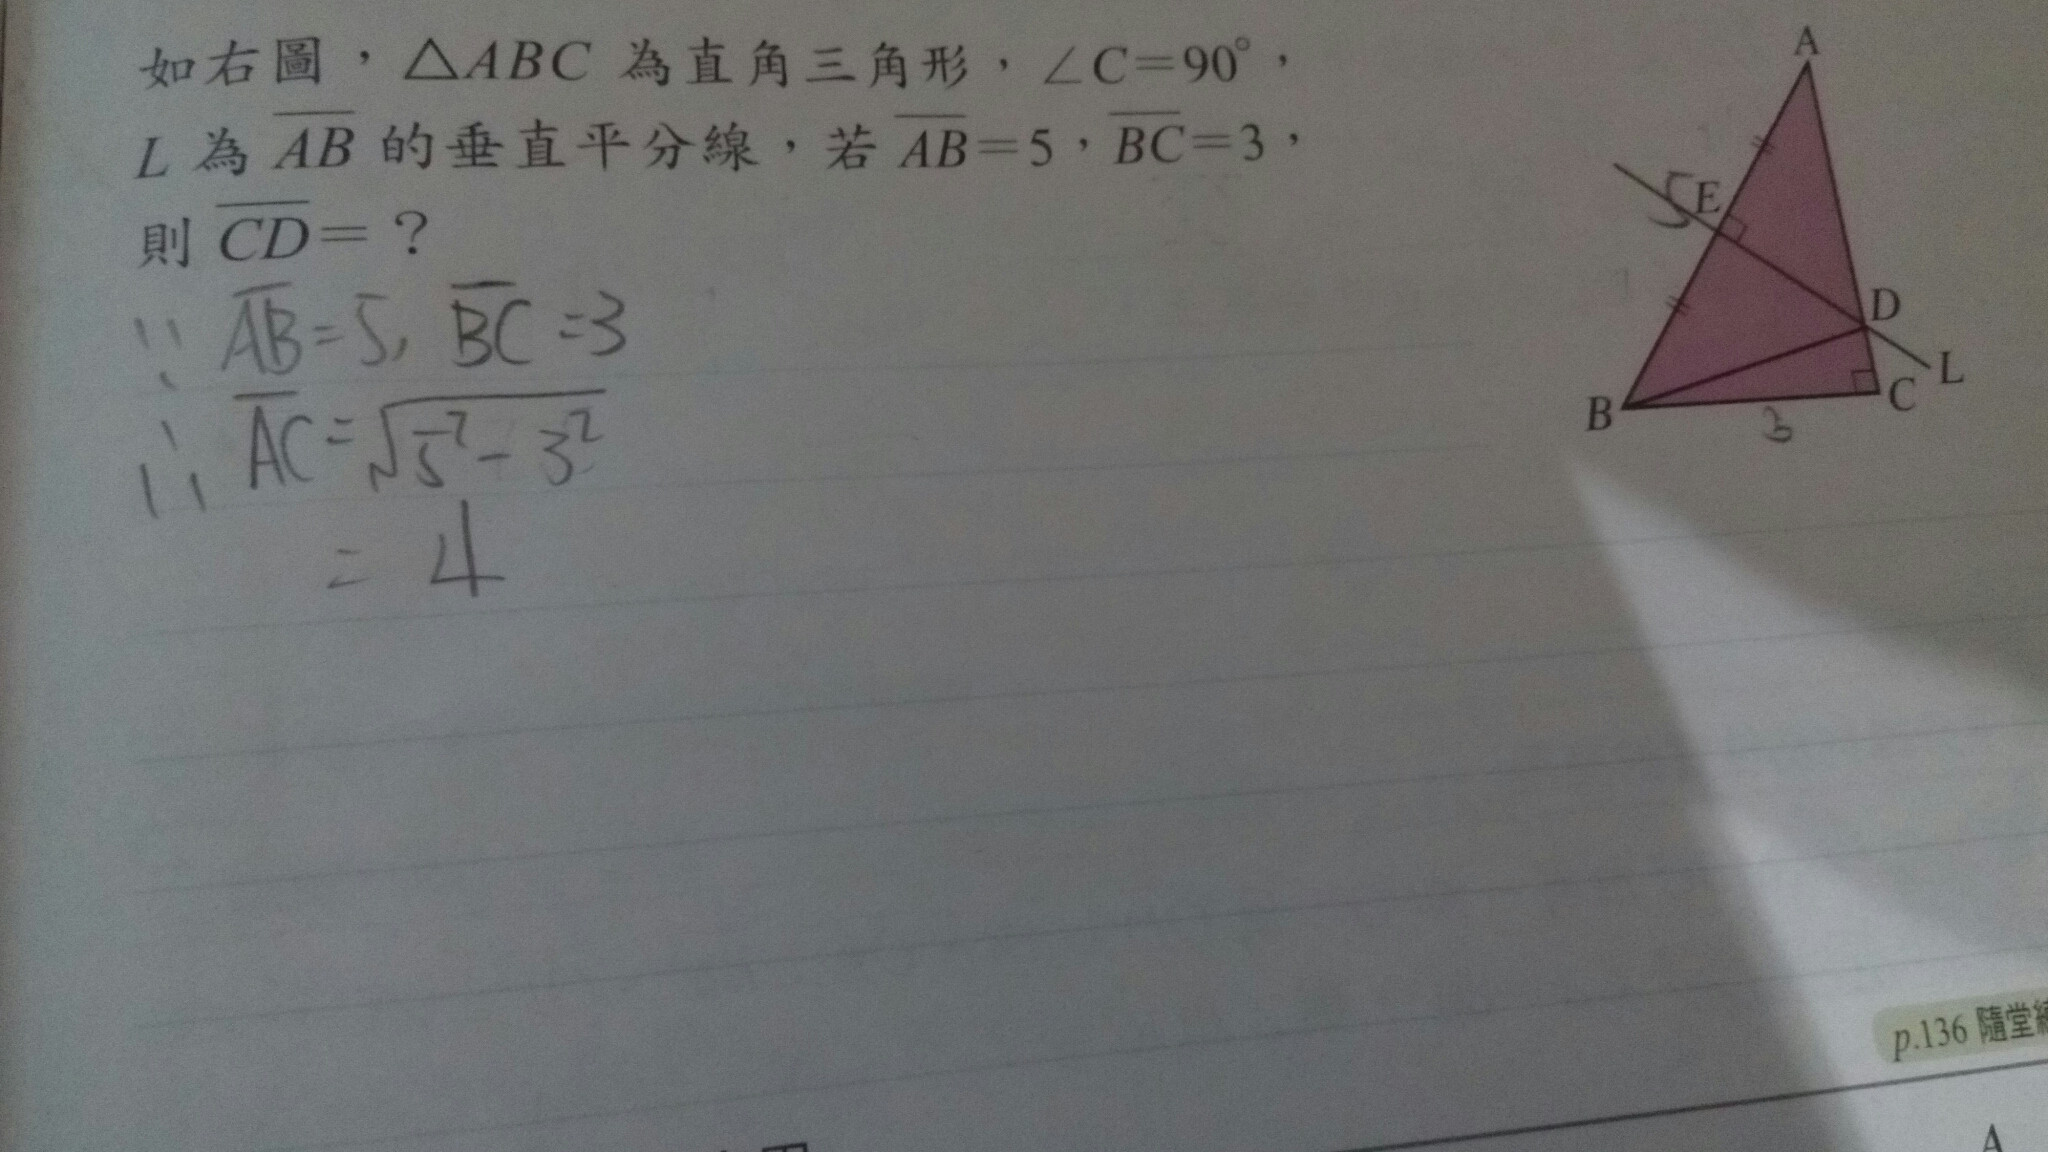 如右圖，△ABC 為直角三角形，∠C=90°，
L 為 A̅B̅ 的垂直平分線，若 A̅B̅=5，B̅C̅=3，
則 C̅D̅=？
∵ A̅B̅=5, B̅C̅=3
∴ A̅C̅=√(5²-3²)
=4
A
5 E
D
L
B
C
3
p.136 隨堂
A